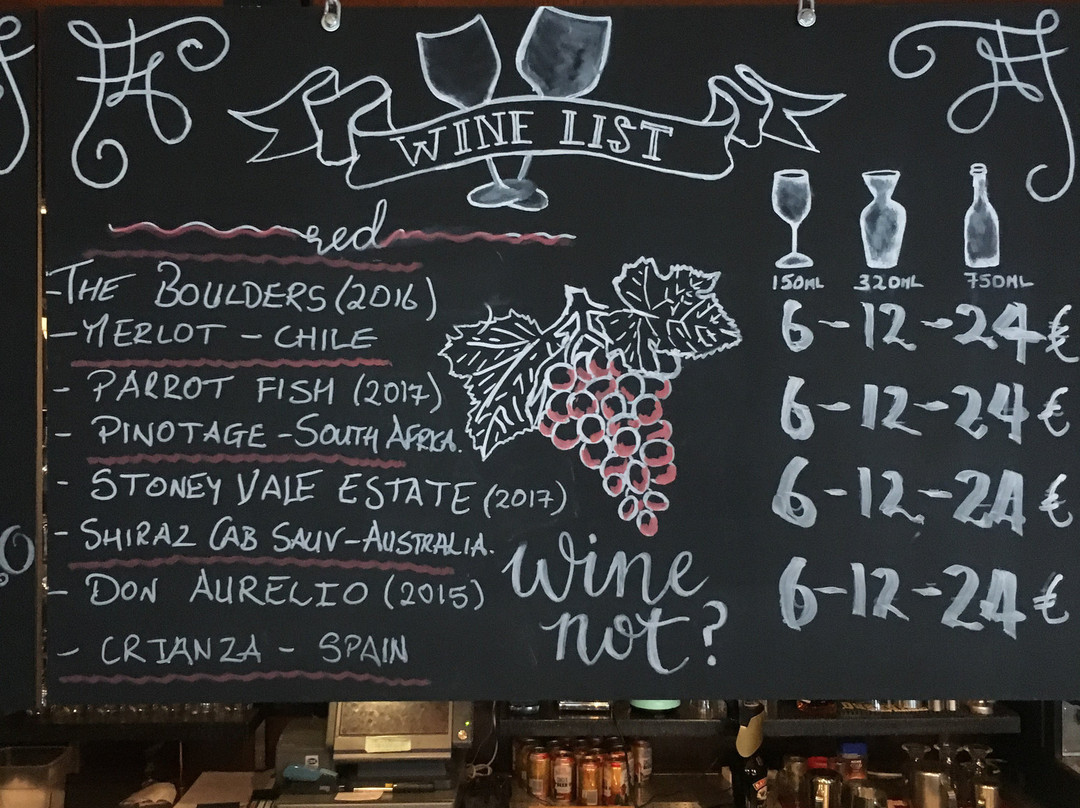 WINE LIST
red
150ML 320ML 750ML
- THE BOULDERS (2016)
- MERLOT - CHILE
6 - 12 - 24 €
- PARROT FISH (2017)
- PINOTAGE - SOUTH AFRICA.
6 - 12 - 24 €
- STONEY VALE ESTATE (2017)
- SHIRAZ CAB SAUV - AUSTRALIA.
6 - 12 - 24 €
- DON AURELIO (2015)
- CRIANZA - SPAIN
6 - 12 - 24 €
wine
not?